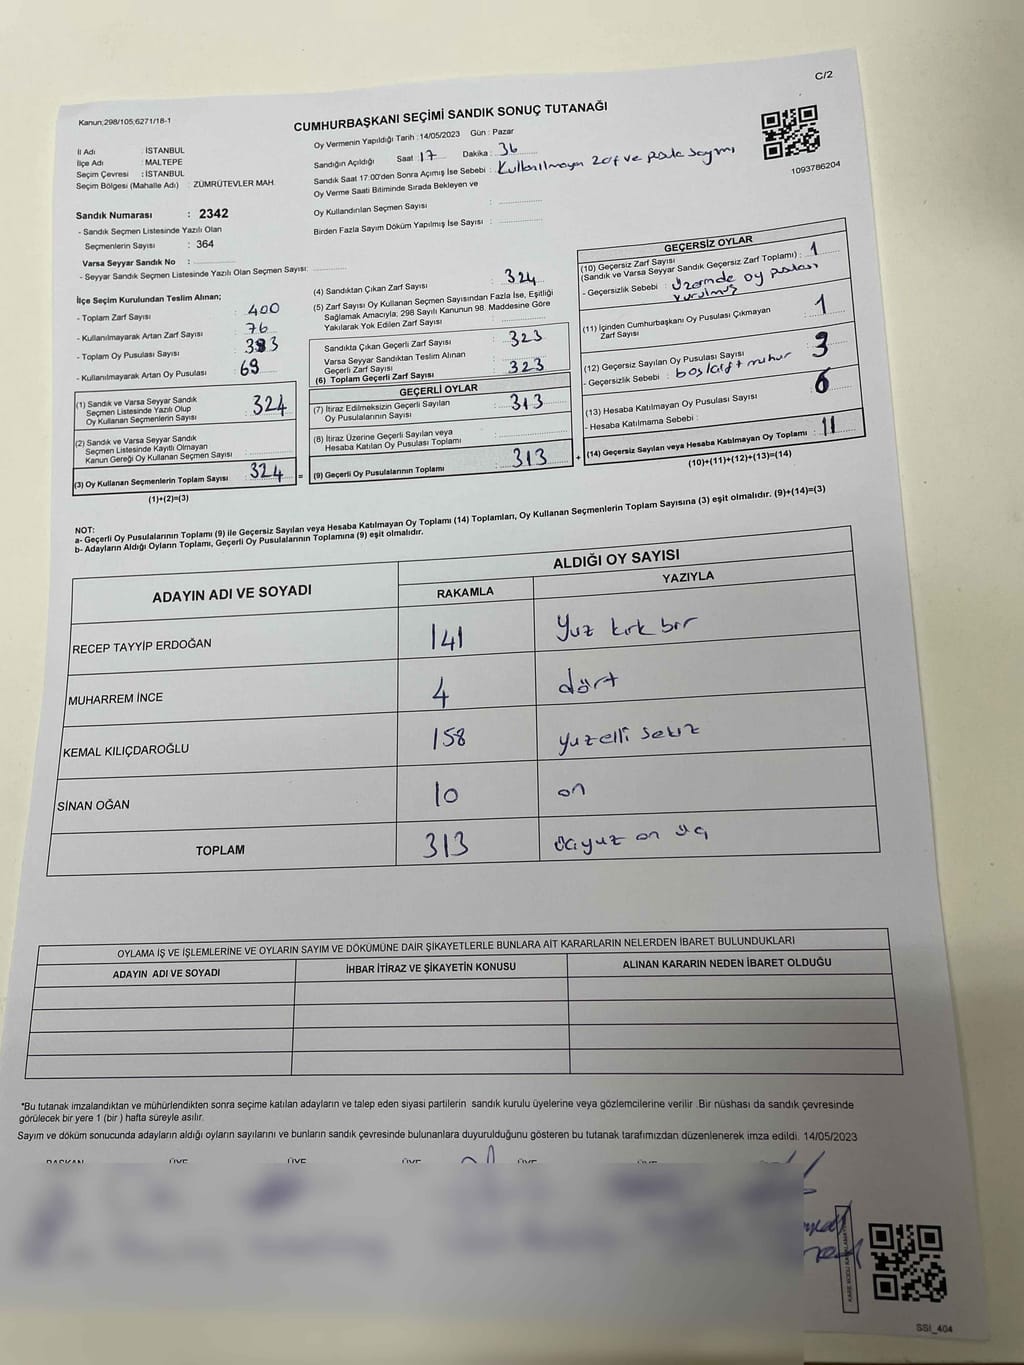 C/2
Kanun:298/105,6271/18-1
CUMHURBAŞKANI SEÇİMİ SANDIK SONUÇ TUTANAĞI
İl Adı : İSTANBUL
İlçe Adı : MALTEPE
Seçim Çevresi : İSTANBUL
Seçim Bölgesi (Mahalle Adı) : ZÜMRÜTEVLER MAH.
Oy Vermenin Yapıldığı Tarih : 14/05/2023 Gün : Pazar
Sandığın Açıldığı Saat : 17 Dakika : 36
Sandık Saat 17:00'den Sonra Açımış İse Sebebi : Kullanılmayan zarf ve pusula sayımı
Oy Verme Saati Bitiminde Sırada Bekleyen ve
Oy Kullandırılan Seçmen Sayısı :
Birden Fazla Sayım Döküm Yapılmış İse Sayısı :
1093786204
Sandık Numarası : 2342
- Sandık Seçmen Listesinde Yazılı Olan
Seçmenlerin Sayısı : 364
Varsa Seyyar Sandık No :
- Seyyar Sandık Seçmen Listesinde Yazılı Olan Seçmen Sayısı:
İlçe Seçim Kurulundan Teslim Alınan;
- Toplam Zarf Sayısı : 400
- Kullanılmayarak Artan Zarf Sayısı : 76
- Toplam Oy Pusulası Sayısı : 393
- Kullanılmayarak Artan Oy Pusulası : 69
(1) Sandık ve Varsa Seyyar Sandık
Seçmen Listesinde Yazılı Olup
Oy Kullanan Seçmenlerin Sayısı : 324
(2) Sandık ve Varsa Seyyar Sandık
Seçmen Listesinde Kayıtlı Olmayan
Kanun Gereği Oy Kullanan Seçmen Sayısı :
(3) Oy Kullanan Seçmenlerin Toplam Sayısı : 324 =
(1)+(2)=(3)
(4) Sandıktan Çıkan Zarf Sayısı : 324
(5) Zarf Sayısı Oy Kullanan Seçmen Sayısından Fazla İse, Eşitliği
Sağlamak Amacıyla; 298 Sayılı Kanunun 98. Maddesine Göre
Yakılarak Yok Edilen Zarf Sayısı :
Sandıkta Çıkan Geçerli Zarf Sayısı : 323
Varsa Seyyar Sandıktan Teslim Alınan
Geçerli Zarf Sayısı :
(6) Toplam Geçerli Zarf Sayısı : 323
GEÇERLİ OYLAR
(7) İtiraz Edilmeksizin Geçerli Sayılan
Oy Pusulalarının Sayısı : 313
(8) İtiraz Üzerine Geçerli Sayılan veya
Hesaba Katılan Oy Pusulası Toplamı :
(9) Geçerli Oy Pusulalarının Toplamı : 313 +
GEÇERSİZ OYLAR
(10) Geçersiz Zarf Sayısı
(Sandık ve Varsa Seyyar Sandık Geçersiz Zarf Toplamı) : 1
- Geçersizlik Sebebi : üzerinde oy pusulası
vurulmuş
(11) İçinden Cumhurbaşkanı Oy Pusulası Çıkmayan
Zarf Sayısı : 1
(12) Geçersiz Sayılan Oy Pusulası Sayısı : 3
- Geçersizlik Sebebi : boş/çift mühür
(13) Hesaba Katılmayan Oy Pusulası Sayısı : 6
- Hesaba Katılmama Sebebi :
(14) Geçersiz Sayılan veya Hesaba Katılmayan Oy Toplamı : 11
(10)+(11)+(12)+(13)=(14)
NOT:
a- Geçerli Oy Pusulalarının Toplamı (9) ile Geçersiz Sayılan veya Hesaba Katılmayan Oy Toplamı (14) Toplamları, Oy Kullanan Seçmenlerin Toplam Sayısına (3) eşit olmalıdır. (9)+(14)=(3)
b- Adayların Aldığı Oyların Toplamı, Geçerli Oy Pusulalarının Toplamına (9) eşit olmalıdır.
ADAYIN ADI VE SOYADI
ALDIĞI OY SAYISI
RAKAMLA YAZIYLA
RECEP TAYYİP ERDOĞAN 141 Yüz kırk bir
MUHARREM İNCE 4 dört
KEMAL KILIÇDAROĞLU 158 yüzelli sekiz
SİNAN OĞAN 10 on
TOPLAM 313 üçyüz on üç
OYLAMA İŞ VE İŞLEMLERİNE VE OYLARIN SAYIM VE DÖKÜMÜNE DAİR ŞİKAYETLERLE BUNLARA AİT KARARLARIN NELERDEN İBARET BULUNDUKLARI
ADAYIN ADI VE SOYADI İHBAR İTİRAZ VE ŞİKAYETİN KONUSU ALINAN KARARIN NEDEN İBARET OLDUĞU
*Bu tutanak imzalandıktan ve mühürlendikten sonra seçime katılan adayların ve talep eden siyasi partilerin sandık kurulu üyelerine veya gözlemcilerine verilir .Bir nüshası da sandık çevresinde
görülecek bir yere 1 (bir ) hafta süreyle asılır.
Sayım ve döküm sonucunda adayların aldığı oyların sayılarını ve bunların sandık çevresinde bulunanlara duyurulduğunu gösteren bu tutanak tarafımızdan düzenlenerek imza edildi. 14/05/2023
BAŞKAN ÜYE ÜYE ÜYE ÜYE ÜYE
SSI_404